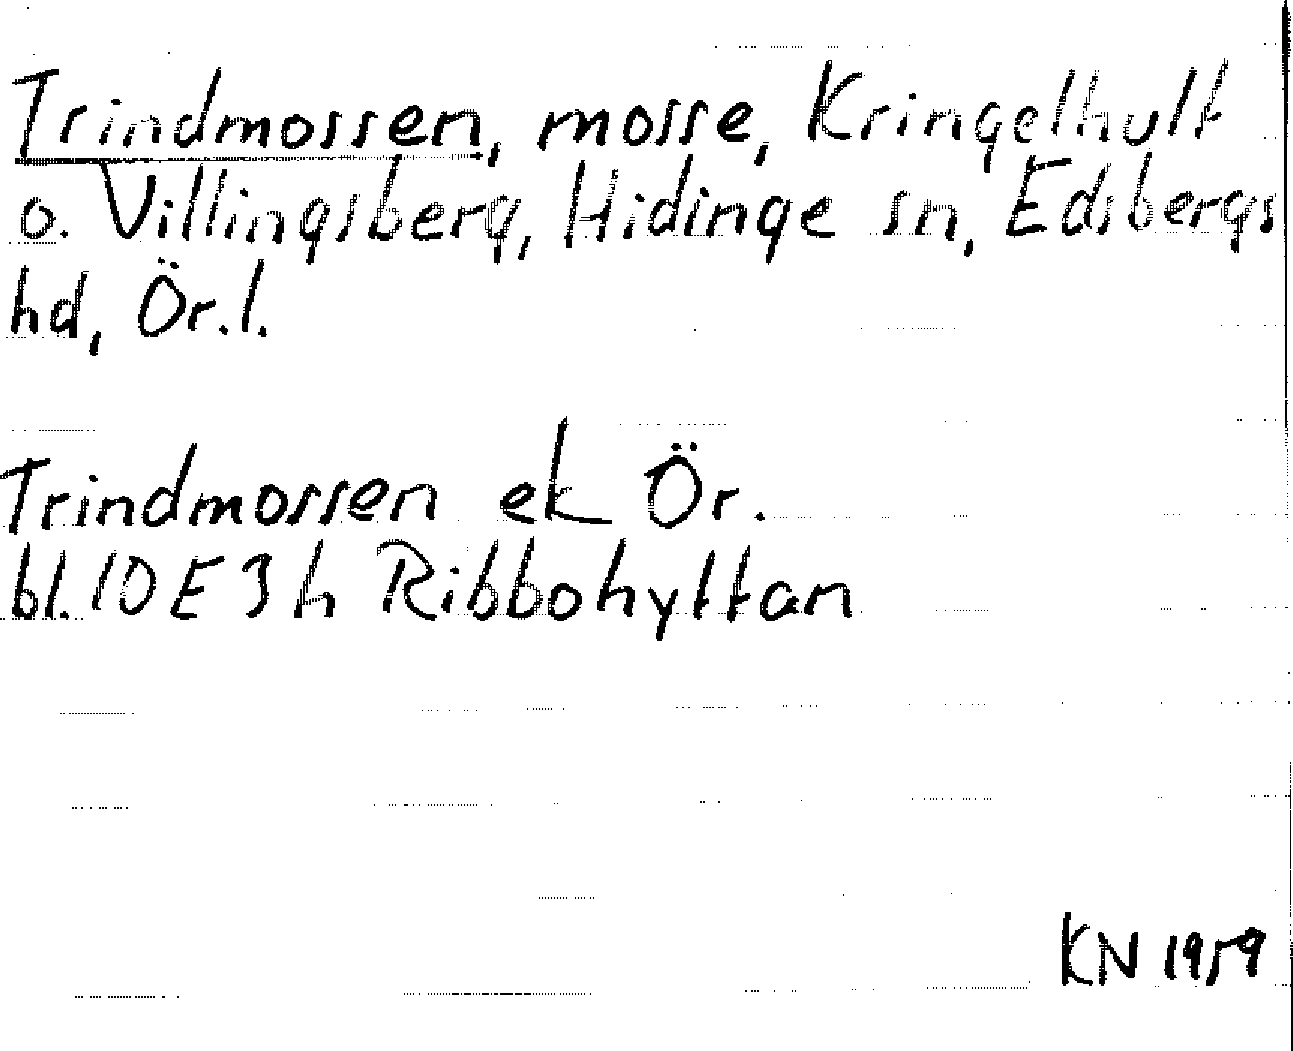 Trindmossen, mosse, Kringelhult
o. Villingsberg, Hidinge sn, Edsbergs
hd, Ör.l.
Trindmossen ek Ör.
bl. 10 E 3 h Ribbohyttan
KN 1959